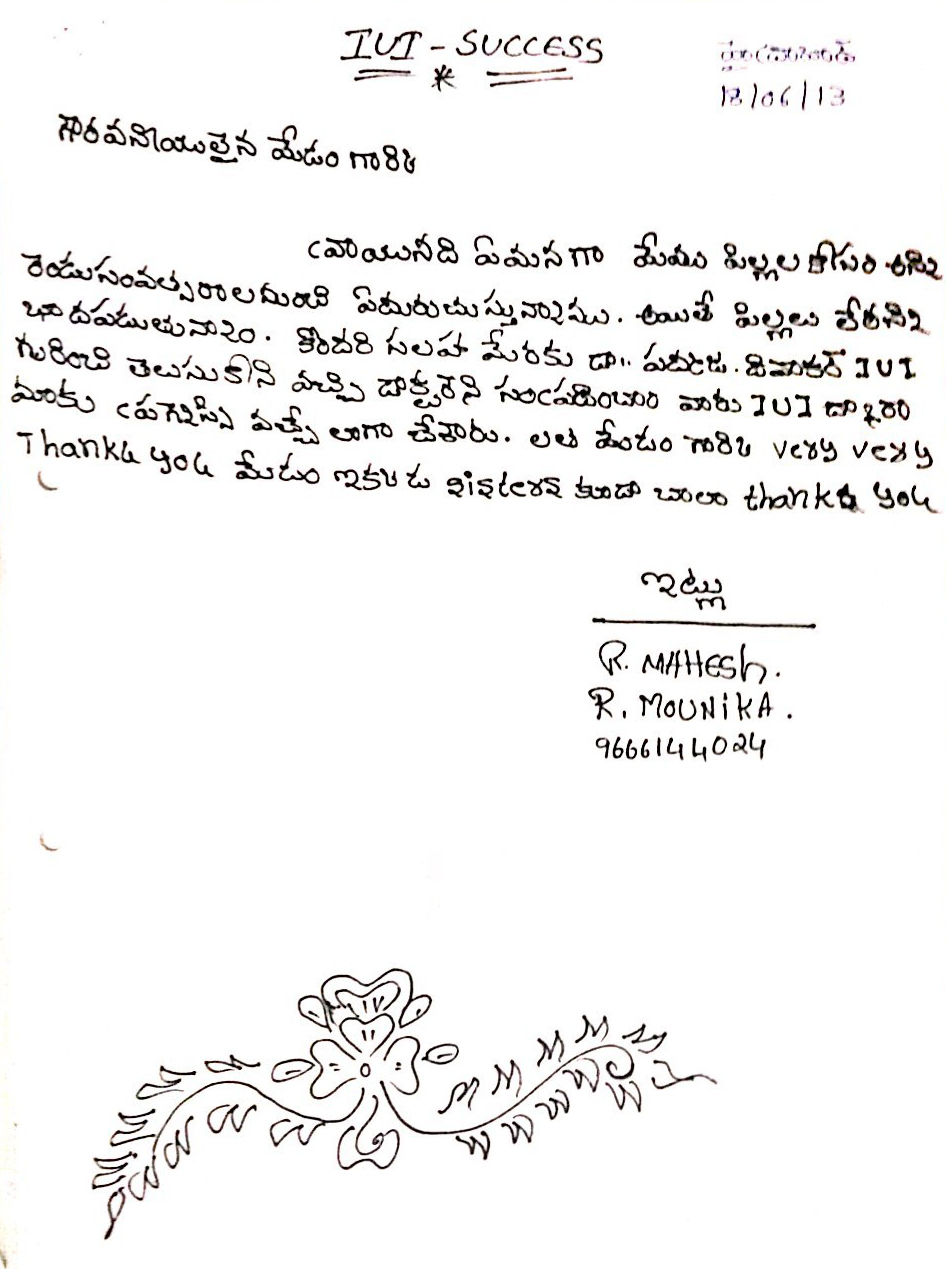 IUI - SUCCESS
హైదరాబాద్
18/06/13
గౌరవనీయులైన మేడం గారికి
వ్రాయునది ఏమనగా మేము పిల్లల కోసం
రెండుసంవత్సరాలనుంచి ఏదురుచుస్తున్నాము. అయితే పిల్లలు లేరని
భాదపడుతున్నాం. కొందరి సలహా మేరకు డా॥ దివాకర్ IUI
గురించి తెలుసుకోని వచ్చి డాక్టరెని సంప్రదించాం వారు IUI ద్వారా
మాకు ప్రగ్నెన్సి వచ్చే లాగా చేశారు. లత మేడం గారికి very very
Thank you మేడం ఇక్కడ sisters కుడా చాలా thank you
ఇట్లు
R. MAHESh.
R. MOUNiKA.
9666144024